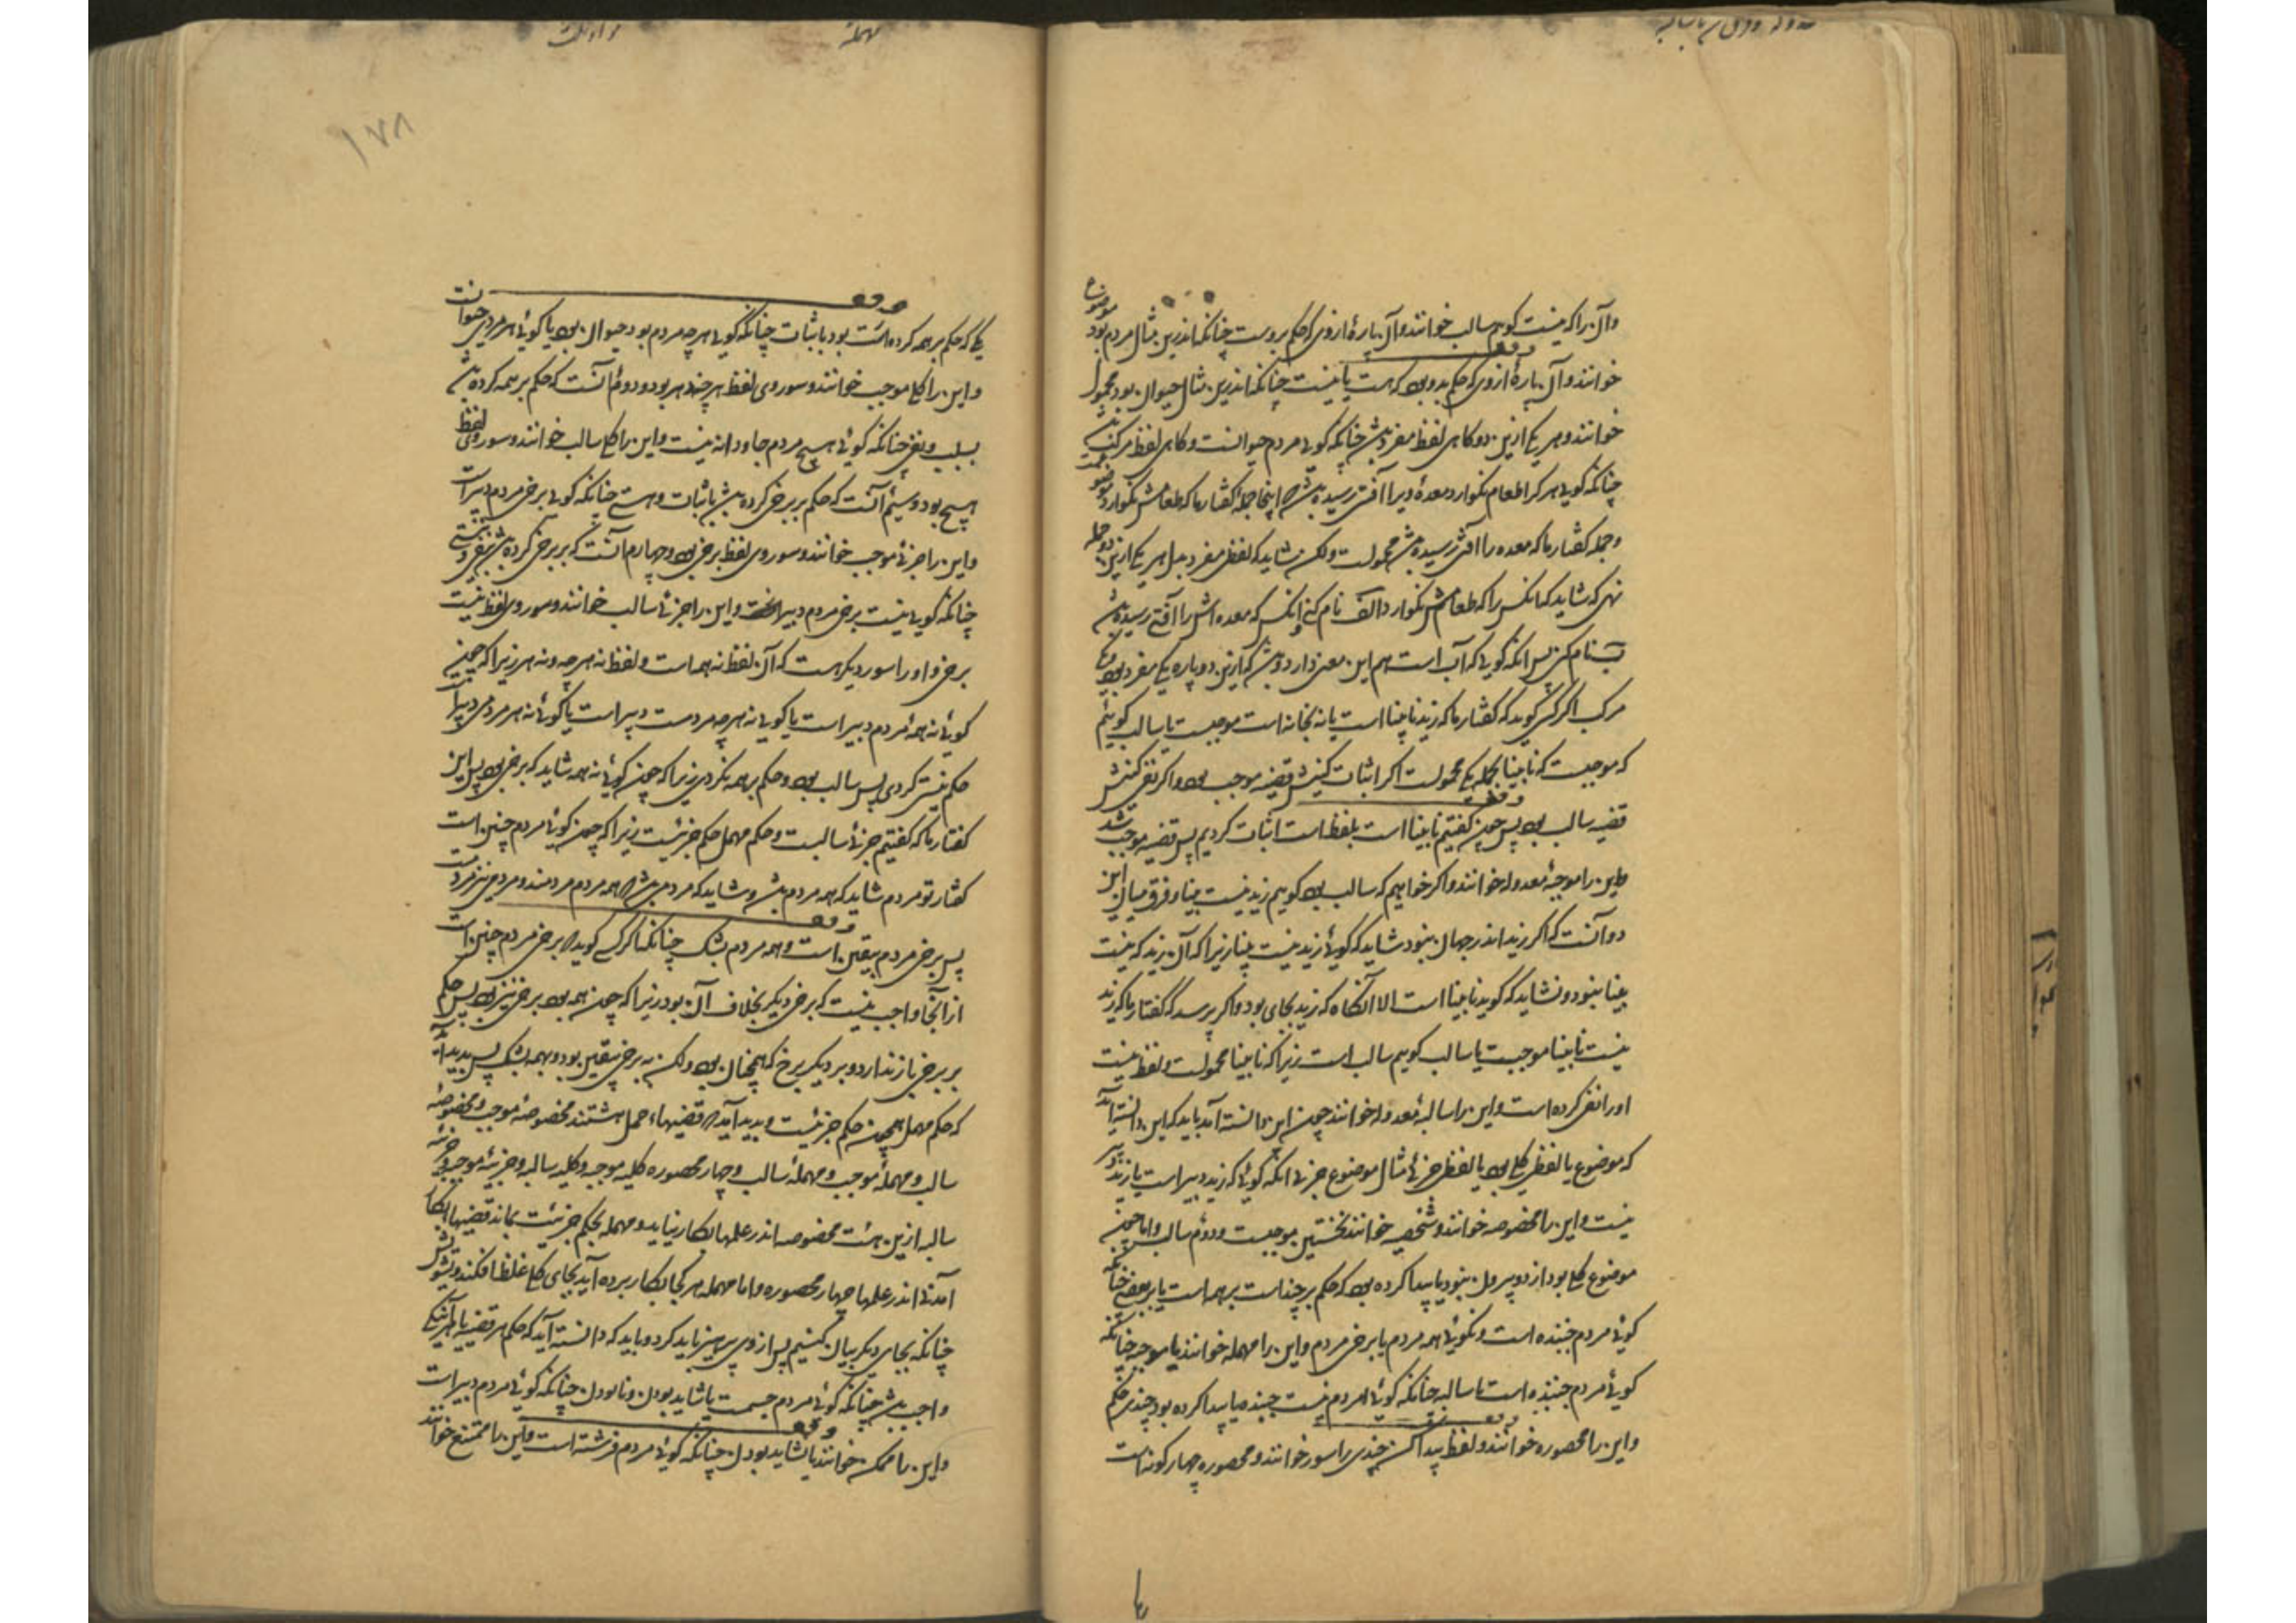 وآن را که نیست گویم سالب خوانند وآن پارهٔ ازوی که حکم بروست چنانکه اندرین مثال مردم بود موضوع
خوانند وآن پارهٔ ازوی که حکم بدو بود که هست یا نیست چنانکه اندرین مثال حیوان بود محمول
خوانند و هر یکی ازین دو گاهی لفظ مفرد باشد چنانکه گوئی مردم حیوانست و گاهی لفظ مرکب باشد
چنانکه گوئی هر کرا طعام نگوارد معدهٔ ویرا آفتی رسیده باشد اینجا جملهٔ گفتار ما که طعامش نگوارد موضوعست
و جمله گفتار ما که معده را آفتی رسیده باشد محمولست ولکن شاید که لفظی مفرد بدل هر یکی ازین دو جمله
نهی که شاید که آنکس را که طعامش نگوارد الف نام کنی و آنکس که معده‌اش را آفتی رسیده باشد
ب نام کنی پس آنکه گوئی که آ ب است هم این معنی دارد و باشد که ازین دو پاره یکی مفرد بود و یکی
مرکب اگر کسی گوید که گفتار ما که زید نابینا است یا نه بخانه است موجبست یا سالب گوئیم
که موجبست که نابینا بجمله یکی محمولست اگر اثبات کنیش قضیه موجب بود و اگر نفی کنیش
قضیه سالب بود پس چون گفتیم نابینا است بلفظ است اثبات کردیم پس قضیه موجب شد
و این را موجبهٔ معدوله خوانند و اگر خواهیم که سالب بود گویم زید نیست بینا و فرق میان این
دو آنست که اگر زید اندر جهان نبود شاید که گوئی زید نیست بینا زیرا که آن زید که نیست
بینا نبود و نشاید که گوید نابینا است الا آنگاه که زید بجای بود و اگر پرسد که گفتار ما که زید
نیست نابینا موجبست یا سالب گویم سالب است زیرا که نابینا محمولست و لفظ نیست
اورا نفی کرده است و این را سالبهٔ معدوله خوانند چون این دانسته آمد باید که این دانسته آید
که موضوع یا لفظی کلی بود یا لفظ جزئی مثال موضوع جزئی آنکه گوئی که زید دبیر است یا زید دبیر
نیست و این را مخصوصه خوانند و شخصیه خوانند نخستین موجبست و دوم سالب و اما چون
موضوع کلی بود از دو بیرون نبود یا پیدا کرده بود که حکم بر چند است بر همه است یا بر بعضی چنانکه
گوئی مردم جنبنده است و نگوئی همه مردم یا برخی مردم و این را مهمله خوانند یا موجبه چنانکه
گوئی مردم جنبنده است یا سالبه چنانکه گوئی مردم نیست جنبنده یا پیدا کرده بود چندی حکم
و این را محصوره خوانند و لفظ پیدا کن چندی را سور خوانند و محصوره چهار گونه است
۱۷۸
یکی که حکم بر همه کرده است بود باثبات چنانکه گوئی هر چه مردم بود حیوان بود یا گوئی هر مردمی حیوانست
و این را کلی موجب خوانند و سور وی لفظ هر چند هر بود و دوم آنست که حکم بر همه کرده باشد
بسلب و نفی چنانکه گوئی هیچ مردم جاودانه نیست و این را کلی سالب خوانند و سور وی لفظ
هیچ بود و سیم آنست که حکم بر برخی کرده باشد باثبات و هستی چنانکه گوئی برخی مردم دبیر است
و این را جزئی موجب خوانند و سور وی لفظ برخی بود و چهارم آنست که بر برخی کرده باشد بنفی و نیستی
چنانکه گوئی نیست برخی مردم دبیر و این را جزئی سالب خوانند و سور وی لفظ نیست
برخی و اورا سور دیگر هست که آن لفظ نه همه است و لفظ نه هر چه و نه هر زیرا که چون
گوئی نه همهٔ مردم دبیر است یا گوئی نه هر چه مردمست دبیر است یا گوئی نه هر مردمی دبیر است
حکم نیستی کردی پس سالب بود و حکم بر همه نکردی زیرا که چون گوئی نه همه شاید که برخی بود پس این
گفتار ما که گفتیم جزئی سالبست و حکم مهمل حکم جزئیست زیرا که چون گوئی مردم چنین است
گفتار تو مردم شاید که همه مردم باشد و شاید که مردمی باشد همه مردم مردمند و مردمی نیز مردمست
پس برخی مردم بیقین است و همه مردم بشک چنانکه اگر کسی گوید برخی مردم چنین است
از آنجا واجب نیست که برخی دیگر بخلاف آن بود زیرا که چون همه بود برخی نیز بود پس حکم
بر برخی باز ندارد و بر دیگر برخ که همچنان بود ولکن به برخی بیقین بود و بهمه بشک پس پدید آمد
که حکم مهمل همچون حکم جزئیست و پدید آمد قضیهاء حمل هشتند مخصوصهٔ موجب و مخصوصهٔ
سالب و مهملهٔ موجب و مهملهٔ سالب و چهار محصوره کلیه موجبه و کلیه سالبه و جزئیهٔ موجبه و جزئیه
سالبه ازین هشت مخصوصه اندر علمها بکار نیاید و مهمله بحکم جزئیست بماند قضیها بکار
آمدنی اندر علمها چهار محصوره و اما مهمله هر کجا بکار برده آید بجای کلی غلط افکند و تشویش
چنانکه بجای دیگر بیان کنیم پس از وی پرهیز باید کرد و باید که دانسته آید که حکم هر قضیه یا هر آینگی
واجب باشد چنانکه گوئی مردم جسمست یا شاید بودن و نابودن چنانکه گوئی مردم دبیر است
و این را ممکن خوانند یا نشاید بودن چنانکه گوئی مردم فرشته است و این را ممتنع خوانند